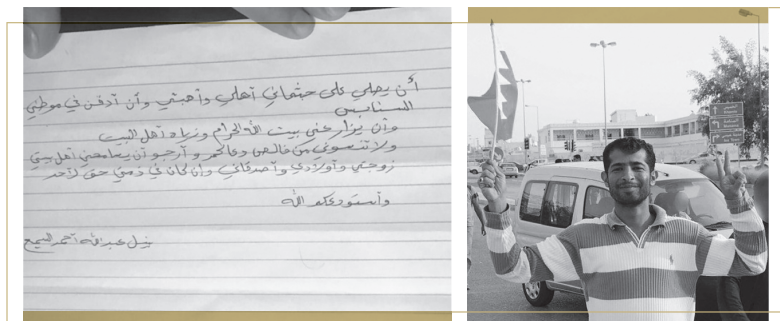 أن يصلي على جثماني أهلي وأحبتي وأن أدفن في موطني
السنابس
وأن يزار عني بيت الله الحرام وزيارة أهل البيت
ولا تنسوني من خالص دعائكم وأرجو أن يسامحني أهل بيتي
زوجتي وأولادي وأصدقائي وإن كان في ذمتي حق لأحد
وأستودعكم الله
نبيل عبدالله أحمد السميع